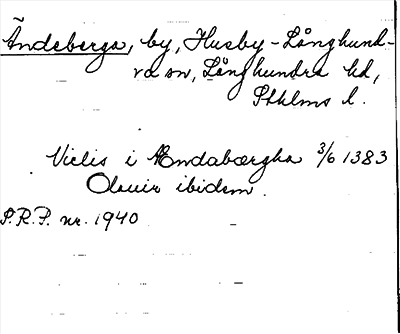 Ändeberga, by, Husby-Långhund-
ra sn, Långhundra hd,
Sthlms l.
Niclis i Ændabærgha 3/6 1383
Olauir ibidem.
S.R.P. nr. 1940